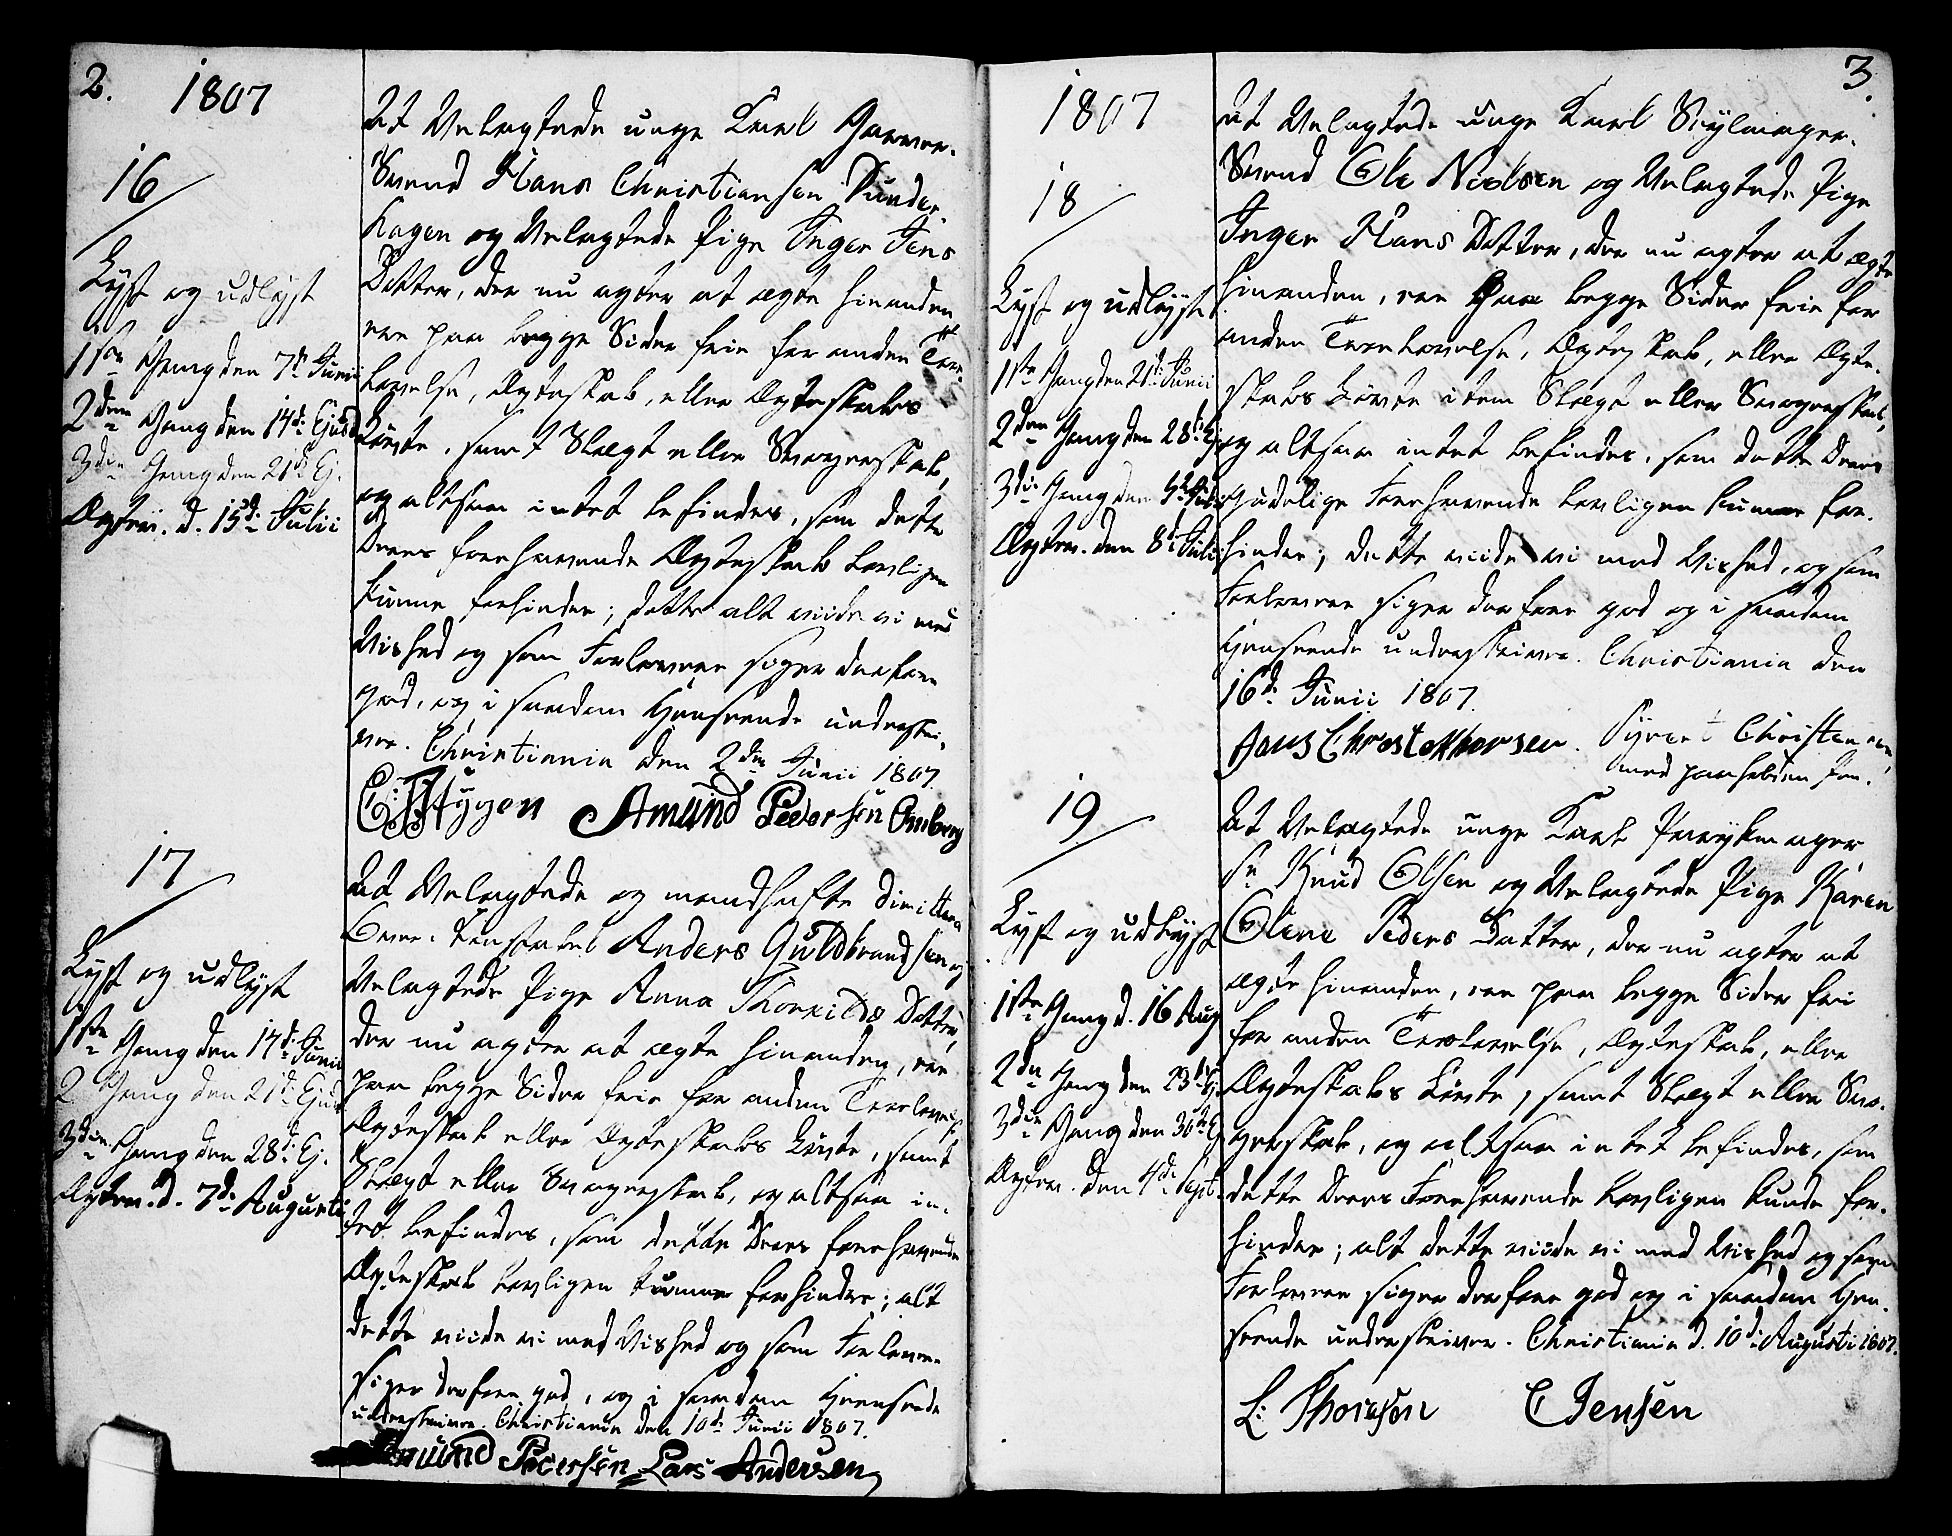 2.
1807
16
Lyst og udlyst
1ste Gang den 7de Junii
2den Gang den 14de Ejusd
3die Gang den 21de Ej.
Ægtev. d. 15de Julii
At Velagtede unge Karl Garver-
Svend Hans Christiansen Dunder-
hagen og Velagtede Pige Inger Jens
Datter, der nu agter at ægte hinanden
ere paa begge Sider frie for anden Troe-
lovelse, Ægteskab, eller Ægteskabs
Løvte, samt Slægt eller Svogerskab,
og altsaa intet befindes, som dette
Deres forehavende Ægteskab lovligen
kunne forhindre; dette alt viide vi med
Vished og som Forlovere siger derfore
god, og i saadan Henseende underskri-
ver. Christiania den 2den Junii 1807.
Hygen Amund Pedersen Omberg
17
Lyst og udlyst
1ste Gang den 14de Junii
2 Gang den 21de Ejusd
3die Gang den 28de Ej.
Ægtev. d. 7de Augusti
At Velagtede og mandhafte dimitteret
Anders Guldbrandsen og
Velagtede Pige Anna Thorkilds Datter,
der nu agter at ægte hinanden, ere
paa begge Sider frie for anden Troelovelse
Ægteskab eller Ægteskabs Løvte, samt
Slægt eller Svogerskab, og altsaa in-
tet befindes, som dette Deres forehavende
Ægteskab lovligen kunne forhindre; alt
dette viide vi med Vished og som Forlovere
siger derfore god, og i saadan Henseende
underskriver. Christiania den 10de Junii 1807.
Amund Pedersen Lars Andersen
3.
1807
18
Lyst og udlyst
1ste Gang den 21de Junii
2den Gang den 28de Ej
3die Gang den 5te Julii
Ægtev. den 8de Julii
At Velagtede unge Karl Seylmager-
Svend Ole Nielsen og Velagtede Pige
Inger Hans Datter, der nu agter at ægte
hinanden, ere paa begge Sider frie for
anden Troelovelse, Ægteskab, eller Ægte-
skabs Løvte item Slægt eller Svogerskab,
og altsaa intet befindes, som dette Deres
Gudelige Forehavende lovligen kunne for-
hindre; dette viide vi med Vished, og som
Forlovere siger derfore god og i saadan
Henseende underskriver. Christiania den
16de Junii 1807.
Christophersen Christensen
med paaholden Pen.
19
Lyst og udlyst
1ste Gang d. 16 Aug
2den Gang den 23de Ej
3die Gang den 30te Ej
Ægtev. den 4de Sept.
At Velagtede unge Karl Paryкmager
Sv. Knud Olsen og Velagtede Pige Karen
Olene Peders Datter, der nu agter at
ægte hinanden, ere paa begge Sider fri
for anden Troelovelse, Ægteskab, eller
Ægteskabs Løvte, samt Slægt eller Svo-
gerskab, og altsaa intet befindes, som
dette Deres Forehavende lovligen kunde for-
hindre; alt dette viide vi med Vished og som
Forlovere siger derfore god og i saadan Hen-
seende underskriver. Christiania d. 10de Augusti 1807.
L: Thoresen C Jensen